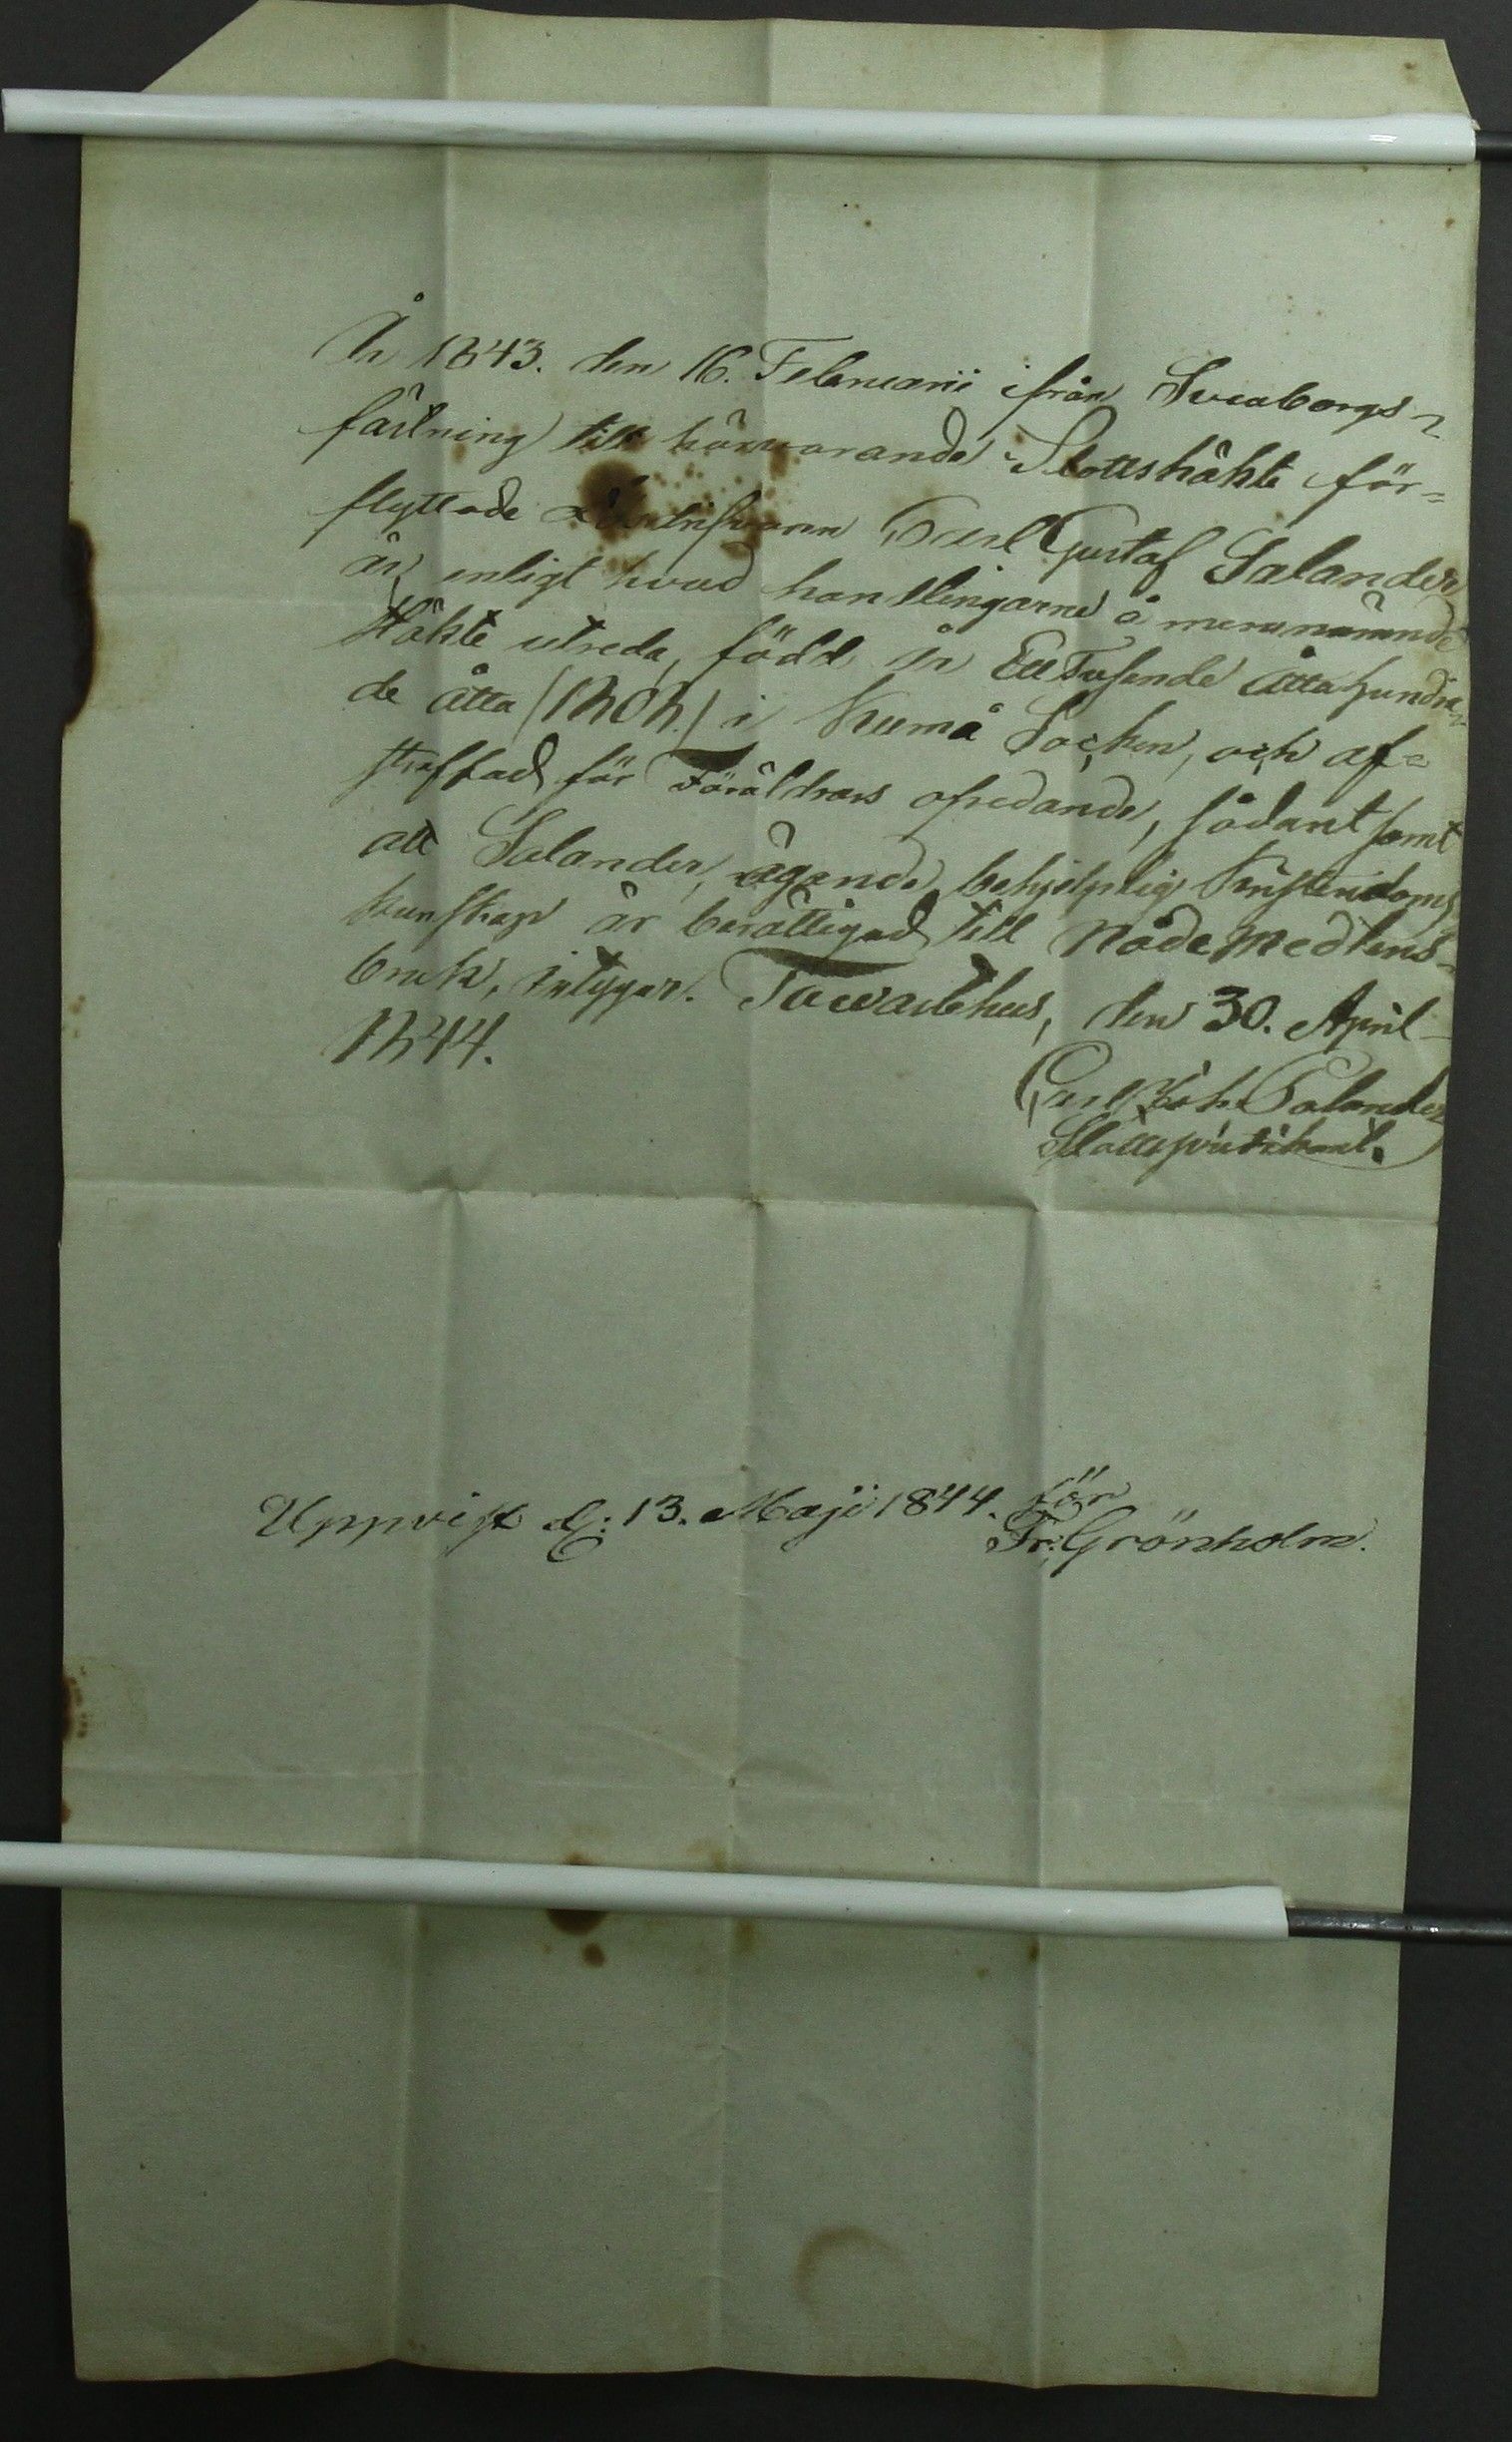 År 1843. den 16. Februarii ifrån Sveaborgs-
fästning till härvarande Slottshäkte för-
flyttade Carl Gustaf Salander
är, enligt hvad handlingarne å mera nämnde
Häkte utreda, född år Ett Tusende Åtta hundra-
de åtta (1808.) i Kumå Socken, och af-
straffad för Föräldrars ofredande, sådant samt
att Salander, ägande behjelplig Kristendoms
kunskap är berättigad till Nådemedlens-
bruk, intygar. Tawastehus, den 30. April
1844.
Carl Joh. Palander
Slottspredikant.
Uppvist d: 13. Maji 1844. för
Fr: Grönholm.